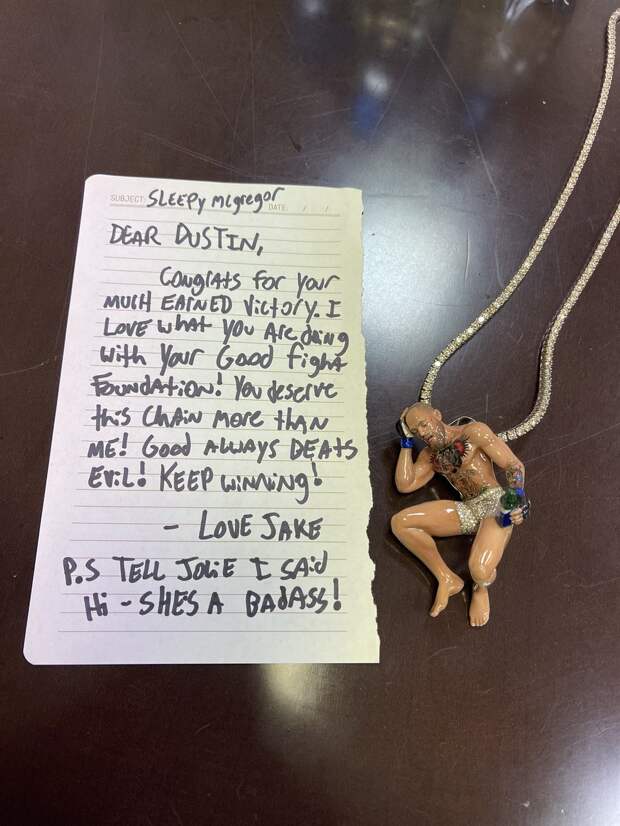 SUBJECT: SLEEPY McGregor
DATE: / /
DEAR DUSTIN,
CONGRATS FOR YOUR
MUCH EARNED VICTORY. I
LOVE WHAT YOU ARE DOING
WITH YOUR GOOD FIGHT
FOUNDATION! YOU DESERVE
THIS CHAIN MORE THAN
ME! GOOD ALWAYS BEATS
EVIL! KEEP WINNING!
- LOVE JAKE
P.S TELL JOLIE I SAID
Hi - SHES A BADASS!